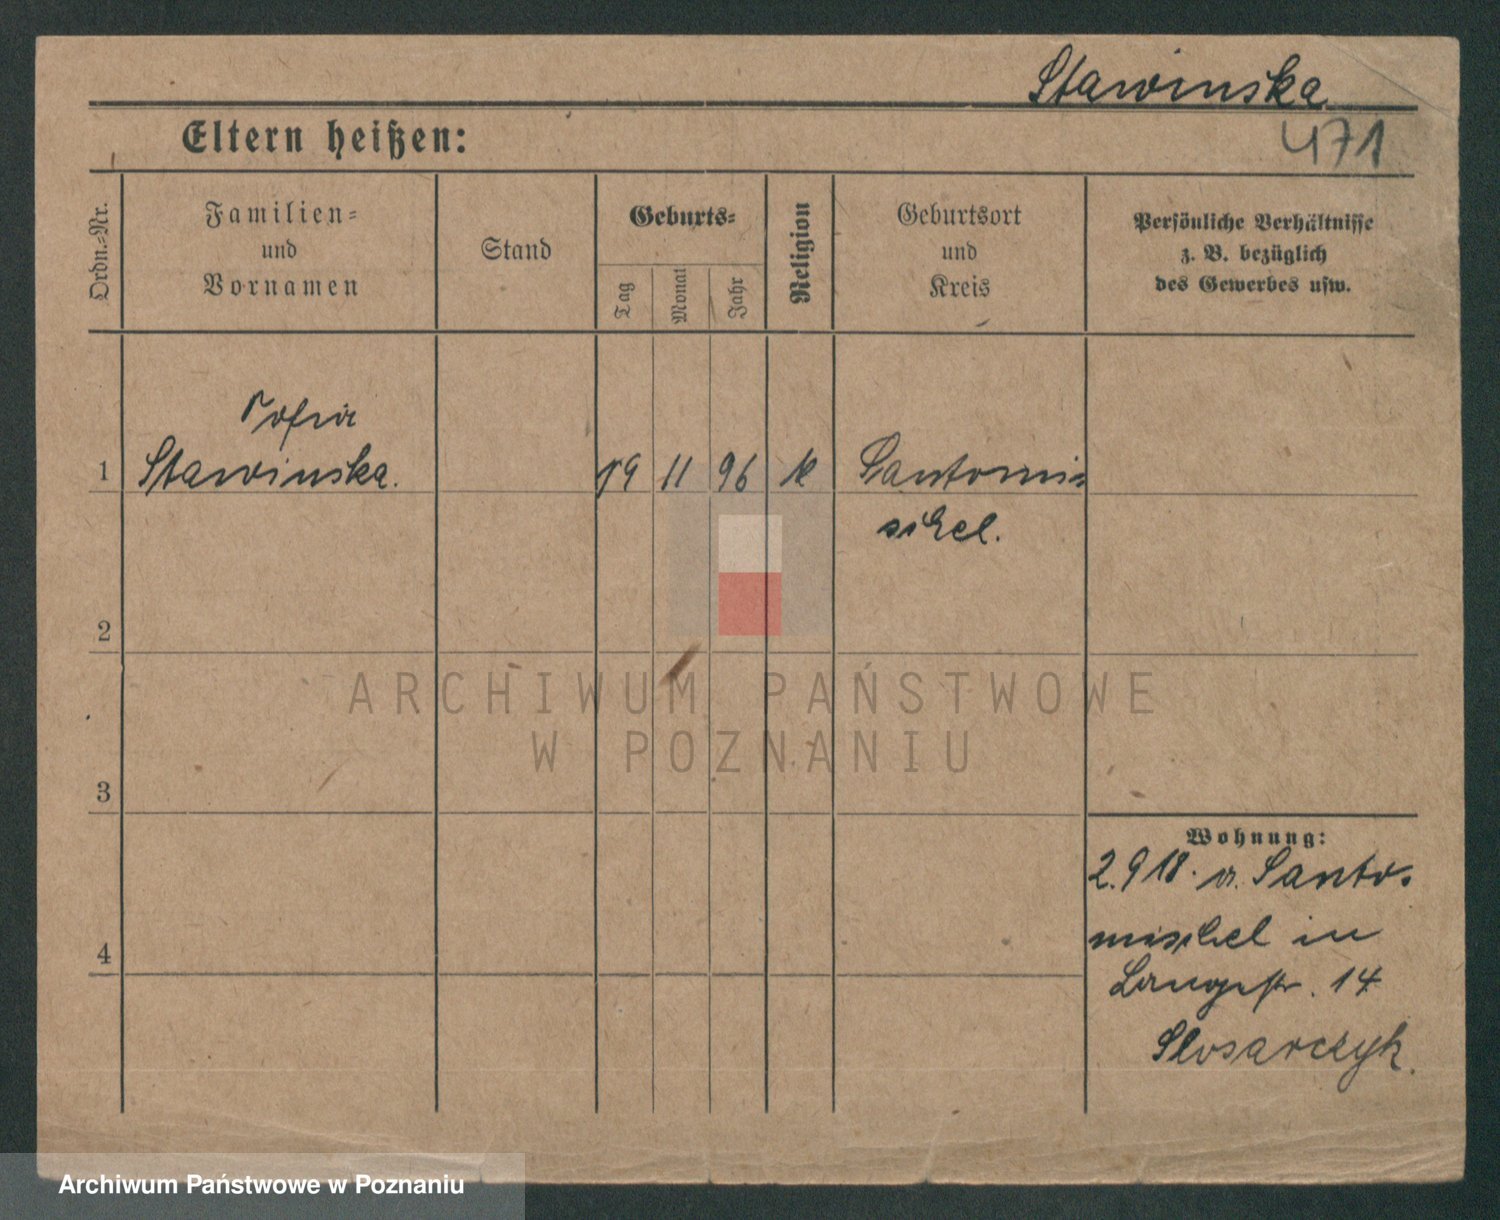 Stawinska
471
Eltern heißen:
Ordn.=Nr.
Familien=
und
Vornamen
Stand
Geburts=
Tag
Monat
Jahr
Religion
Geburtsort
und
Kreis
Persönliche Verhältnisse
z. B. bezüglich
des Gewerbes usw.
Sofia
1 Stawinska. 19 11 96 k Santomi=
schel.
2
3
4
Wohnung:
2.9 18. v. Santo=
mischel in
Langestr. 14
Slosarczyk.
ARCHIWUM PAŃSTWOWE
W POZNANIU
Archiwum Państwowe w Poznaniu